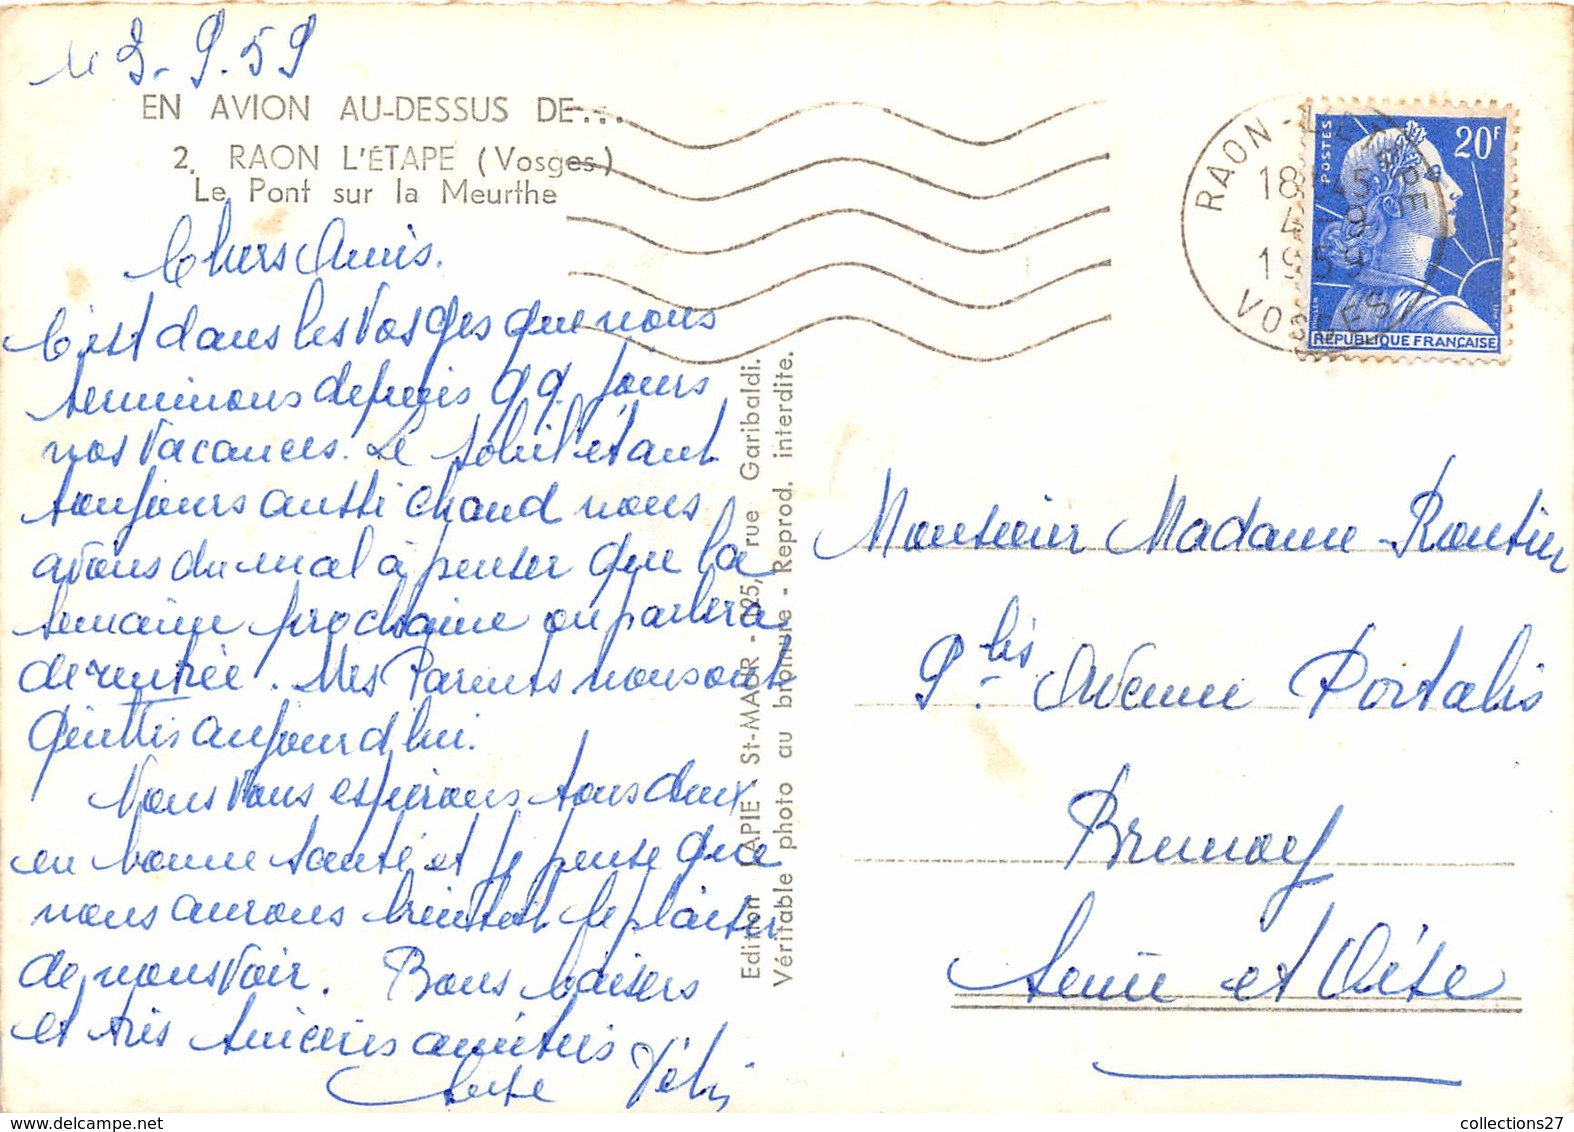 le 3-9-59
EN AVION AU-DESSUS DE...
2. RAON L'ÉTAPE (Vosges)
Le Pont sur la Meurthe
Chers Amis.
C'est dans les Vosges que nous
terminons depuis qq. jours
nos vacances. Le soleil étant
toujours aussi chaud nous
avons du mal à penser que la
semaine prochaine on parlera
de rentrée. Mes Parents nous ont
quittés aujourd'hui.
Nous vous espérons tous deux
en bonne santé et je pense que
nous aurons bientôt le plaisir
de nous voir. Bons baisers
et très sincères amitiés
Edition LAPIE - St-MAUR - 125, rue Garibaldi.
Véritable photo au bromure - Reprod. interdite.
RAON-L'ÉTAPE
18 45
4-9
1959
VOSGES
POSTES
20F
REPUBLIQUE FRANÇAISE
Monsieur Madame Rontier
9 bis Avenue Portalis
Brunoy
Seine et Oise
collections27